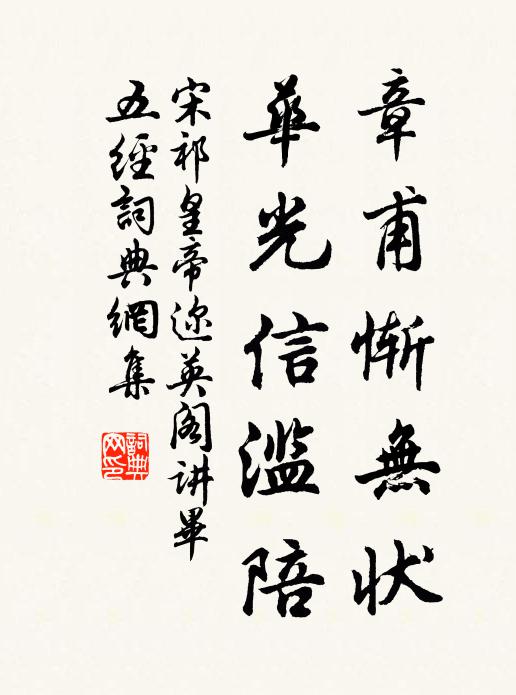 章甫慚無状
華光信濫陪
宋祁皇帝迩英阁讲畢
五經詞典網集
詞典網印